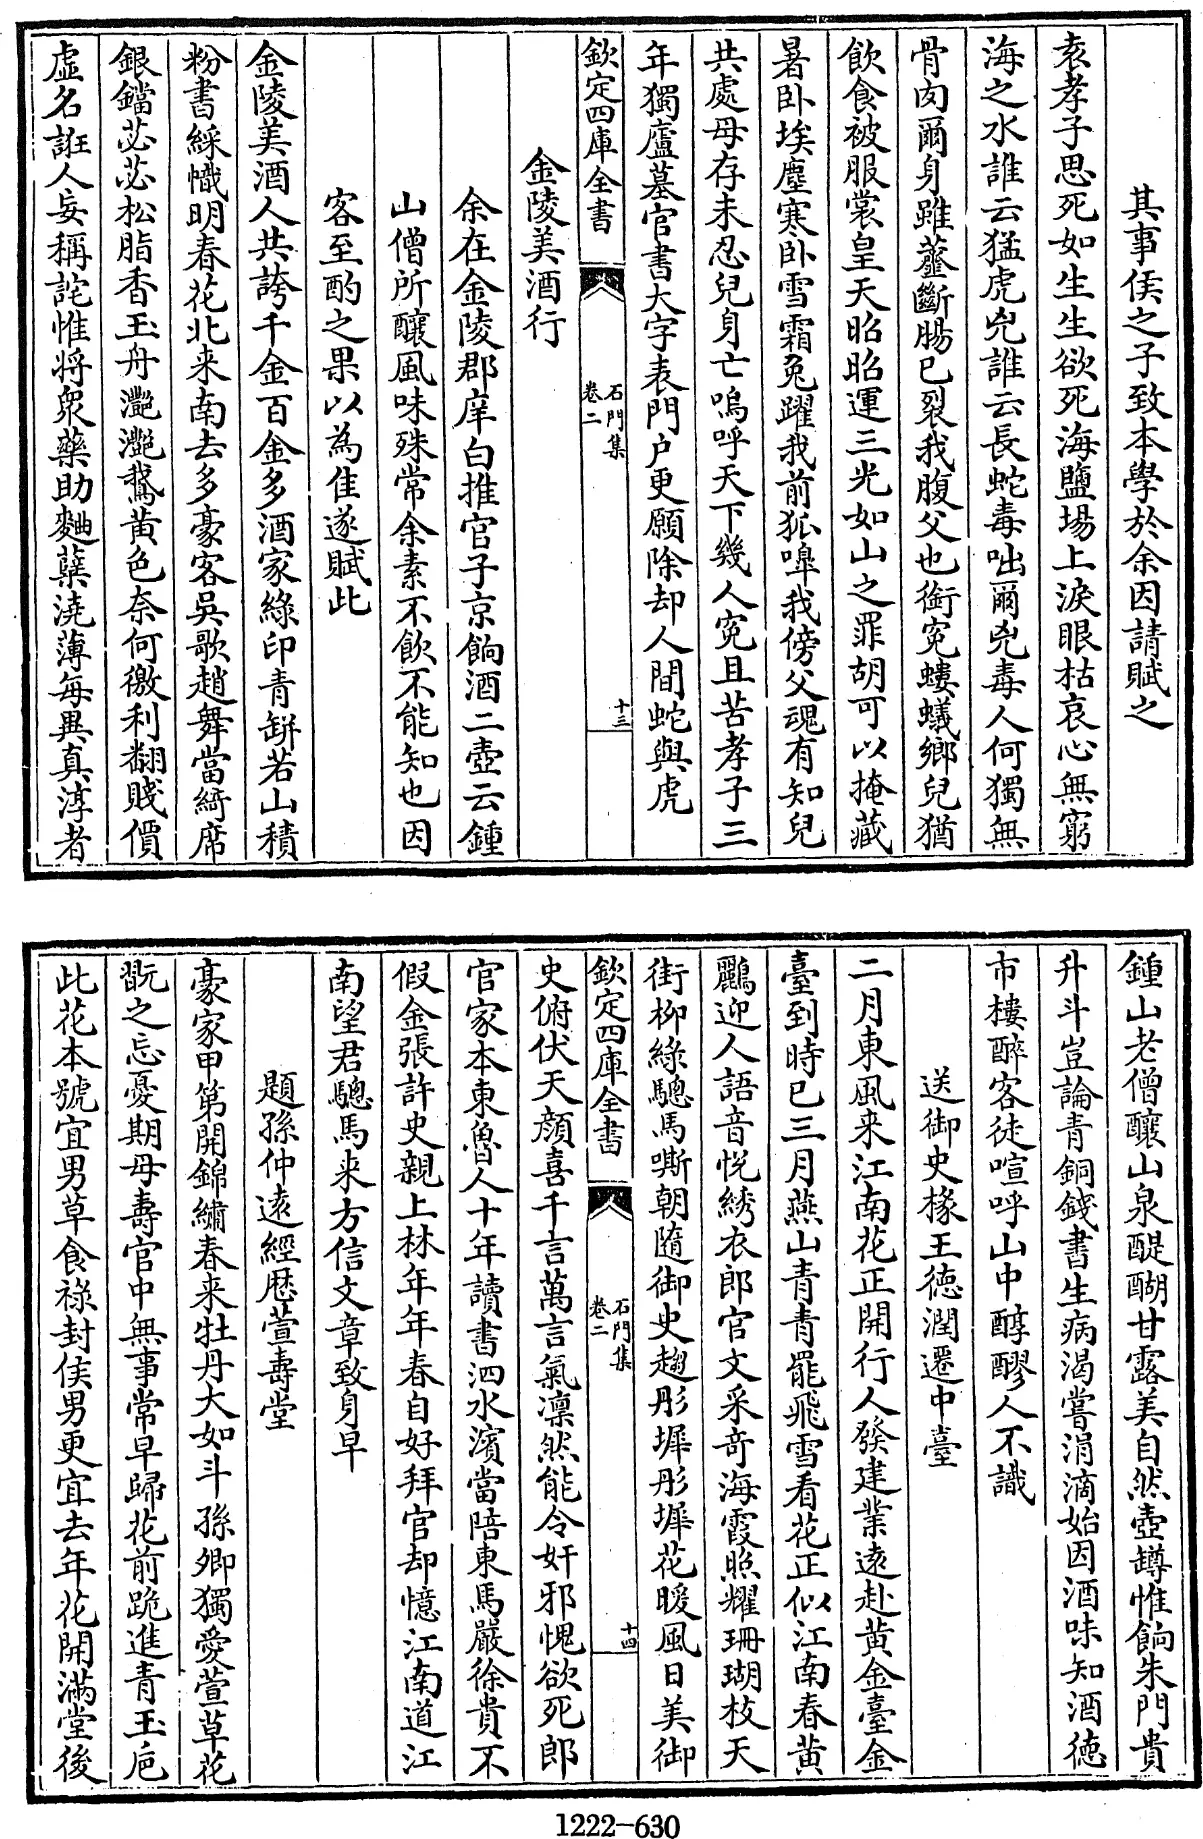 其事侯之子致本學於余因請賦之
袁孝子思死如生生欲死海鹽場上淚眼枯哀心無窮
海之水誰云猛虎兕誰云長蛇毒咄爾兕毒人何獨無
骨肉爾身雖虀斷腸已裂我腹父也銜寃螻蟻鄉兒猶
飲食被服裳皇天昭昭運三光如山之罪胡可以掩藏
暑卧埃塵寒卧雪霜兔躍我前狐嘷我傍父魂有知兒
共處母存未忍兒身亡嗚呼天下幾人寃且苦孝子三
年獨廬墓官書大字表門户更願除却人間蛇與虎
欽定四庫全書
石門集
卷二
十三
金陵美酒行
余在金陵郡庠白推官子京餉酒二壺云鍾
山僧所釀風味殊常余素不飲不能知也因
客至酌之果以為佳遂賦此
金陵美酒人共誇千金百金多酒家綠印青缾若山積
粉書綵幟明春花北来南去多豪客吳歌趙舞當綺席
銀鐺苾苾松脂香玉舟灩灩鵞黃色奈何徼利翻賤價
虛名誑人妄稱詫惟将衆藥助麯蘖澆薄每異真淳者
鍾山老僧釀山泉醍醐甘露美自然壺罇惟餉朱門貴
升斗豈論青銅錢書生病渴嘗涓滴始因酒味知酒德
市樓醉客徒喧呼山中醇醪人不識
送御史掾王德潤遷中臺
二月東風来江南花正開行人發建業遠赴黄金臺金
臺到時已三月燕山青青罷飛雪看花正似江南春黄
鸝迎人語音悦綉衣郎官文采奇海霞照耀珊瑚枝天
街柳綠驄馬嘶朝隨御史趨彤墀彤墀花暖風日美御
欽定四庫全書
石門集
卷二
十四
史俯伏天顔喜千言萬言氣凛然能令奸邪愧欲死郎
官家本東魯人十年讀書泗水濱當陪東馬嚴徐貴不
假金張許史親上林年年春自好拜官却憶江南道江
南望君驄馬来方信文章致身早
題孫仲遠經歴萱壽堂
豪家甲第開錦繡春来牡丹大如斗孫卿獨愛萱草花
翫之忘憂期母壽官中無事常早歸花前跪進青玉巵
此花本號宜男草食祿封侯男更宜去年花開滿堂後
1222-630